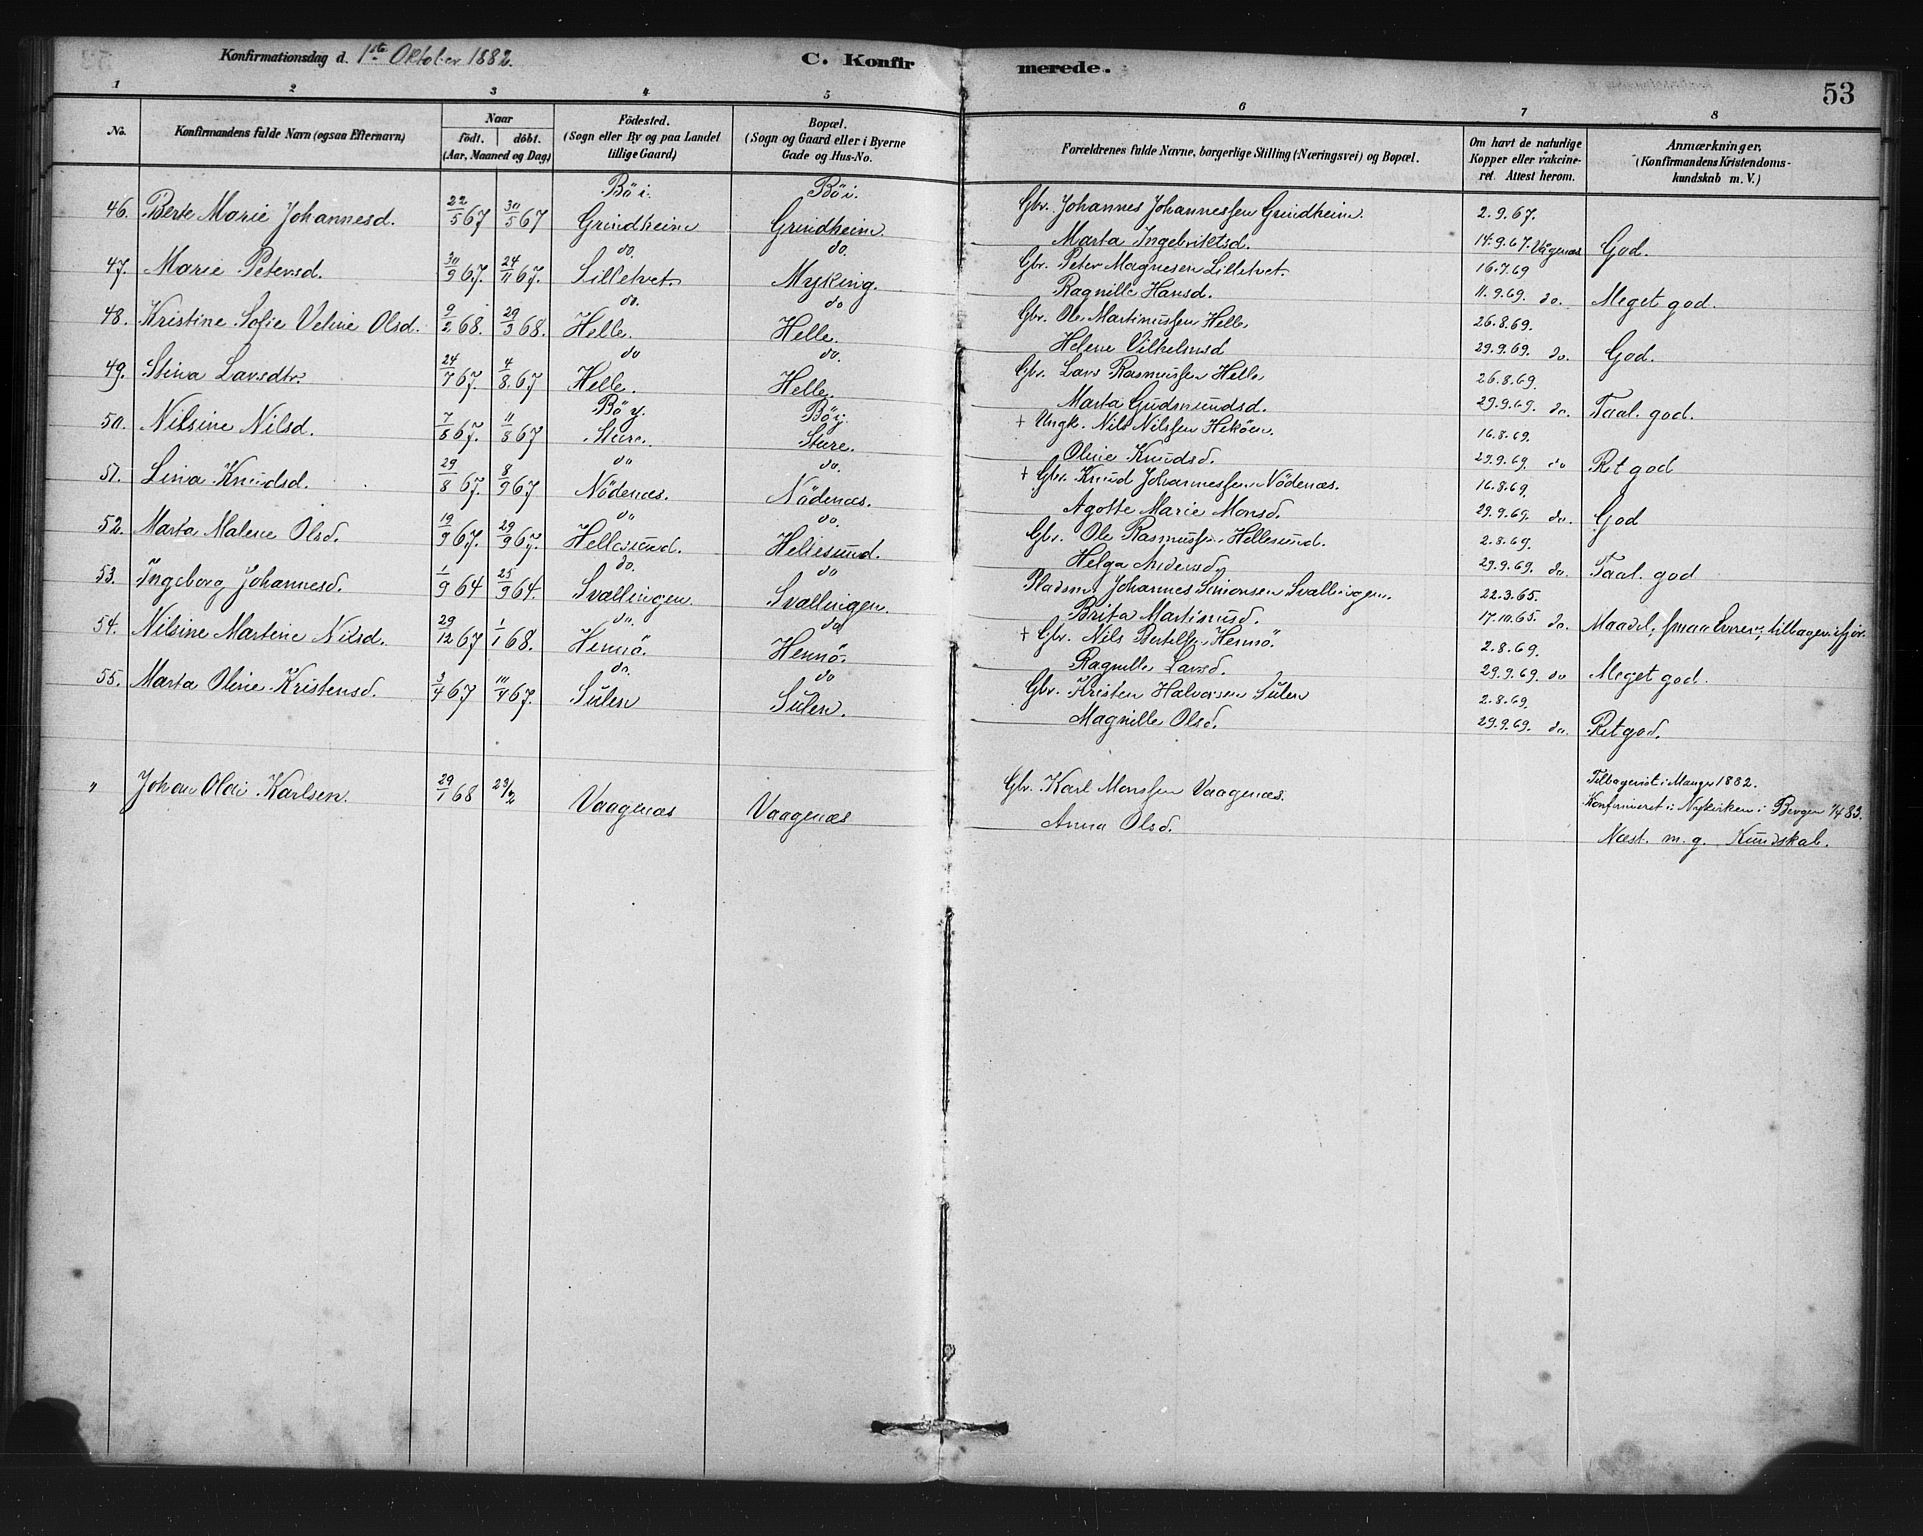 Konfirmationsdag d. 1ste Oktober 1882.
C. Konfirmerede.
53
1 2 3 4 5 6 7 8
No.
Konfirmandens fulde Navn (ogsaa Efternavn)
Naar
födt. döbt.
(Aar, Maaned og Dag)
Födested.
(Sogn eller By og paa Landet
tillige Gaard)
Bopæl.
(Sogn og Gaard eller i Byerne
Gade og Hus-No.
Forældrenes fulde Navne, borgerlige Stilling (Næringsvei) og Bopæl.
Om havt de naturlige
Kopper eller vakcine-
ret. Attest herom.
Anmærkninger.
(Konfirmandens Kristendoms-
kundskab m. V.)
Bö i. Bö i.
46. Berte Marie Johannesd. 22/5 67 30/5 67 Grindheim Grindheim. Gbr. Johannes Johannessen Grindheim. 2.9.67.
Marta Ingebriktsd. 14.9.67. Vågenæs God.
do. do.
47. Marie Petersd. 30/9 67. 24/11 67. Lilletvet. Myking. Gbr. Peter Magnesen Lilletvet. 16.7.69
Ragnille Hansd. 11.9.69. do. Meget god.
do. do
48. Kristine Sofie Veline Olsd. 9/2 68. 29/3 68. Helle. Helle. Gbr. Ole Martinussen Helle 26.8.69.
Helene Vilhelmsd 29.9.69. do. God.
do do.
49. Stina Larsdtr. 24/7 67. 4/8 67 Helle. Helle. Gbr. Lars Rasmussen Helle 26.8.69.
Marta Gudmundsd. 29.9.69. do Taal. god.
Bö i. Bö i.
50. Nilsine Nilsd. 7/8 67. 11/8 67 Sture. Sture. + Ungk. Nils Nilssen 16.8.69.
Oline Knudsd. 29.9.69. do Ret god
do do.
51. Lina Knudsd. 29/8 67. 8/9 67 Nödenæs. Nödenæs. + Gbr. Knud Johannessen Nödenæs. 16.8.69.
Agotte Marie Monsd. 29.9.69. do. God
do do.
52. Marta Malene Olsd. 19/9 67. 29/9 67. Hellesund. Hellesund. Gbr. Ole Rasmussen Hellesund. 2.8.69.
Helga Andersd. 29.9.69. do. Taal. god
do. do
53. Ingeborg Johannesd. 1/9 64 25/9 64. Svallingen. Svallingen. Pladsm. Johannes Simonsen Svallingen. 22.3.65.
Brita Martinusd. 17.10.65. do. Maadel, smaa Evner, tilbagev. ifjor.
do. do
54. Nilsine Martine Nilsd. 29/12 67 1/1 68. Hennö. Hennö. + Gbr. Nils Bertelsen Hennö. 2.8.69.
Ragnille Larsd. 29.9.69. do Meget god.
do. do
55. Marta Oline Kristensd. 3/4 67 11/4 67. Sulen Sulen. Gbr. Kristen Halvorsen Sulen 2.8.69.
Magnille Olsd. 29.9.69. do. Ret god.
" Johan Olai Karlsen. 29/1 68 23/2 Vaagenæs Vaagenæs Gbr. Karl Monssen Vaagenæs. Tilbagevist i Manger 1882.
Konfirmeret i Nykirken i Bergen 1/4 83.
Anna Olsd. Næst. m. g. Kundskab.